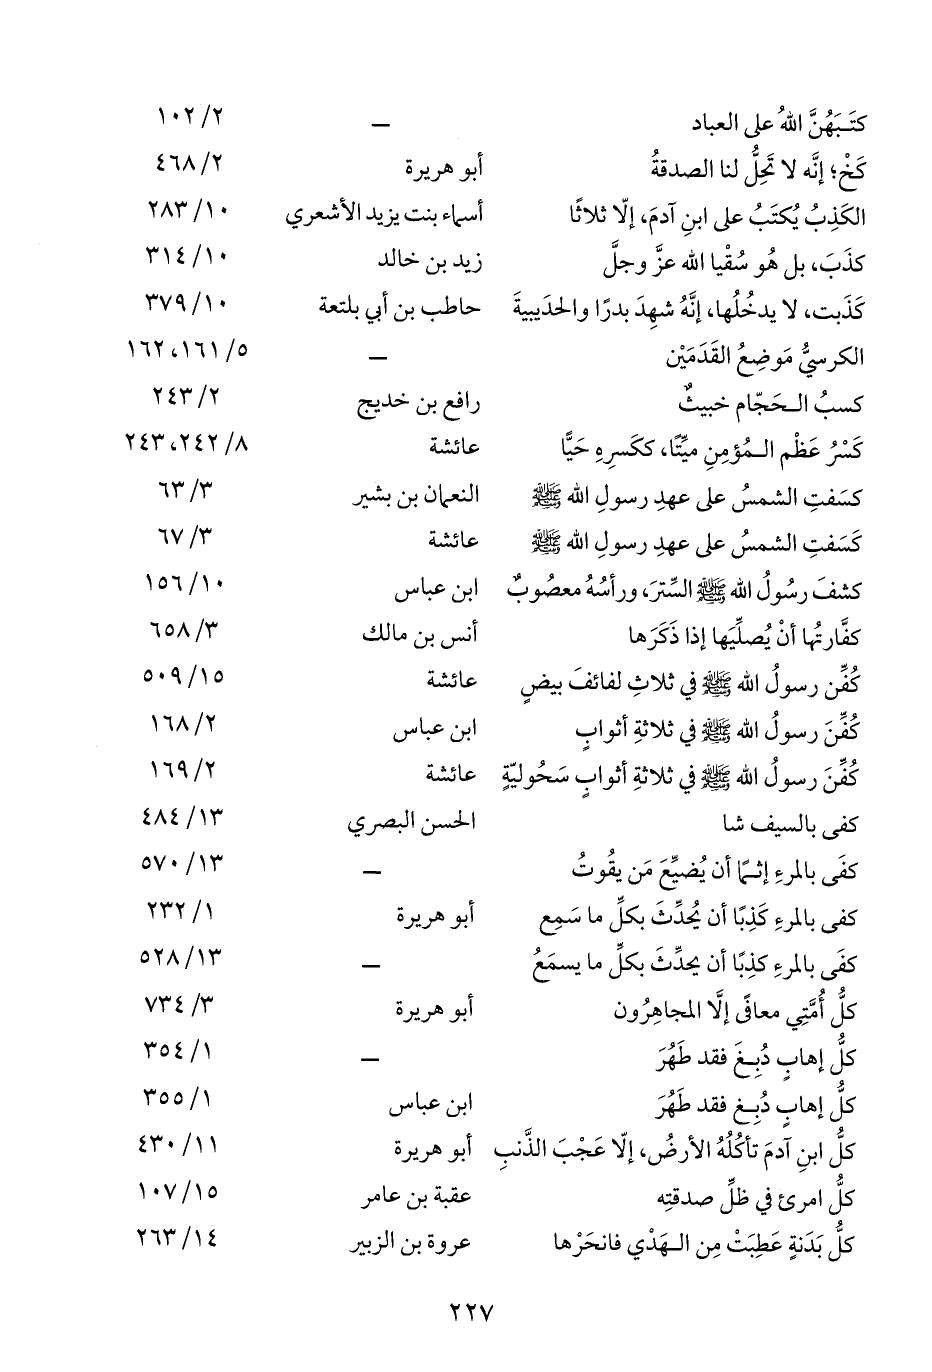 كتَبَهُنَّ اللهُ على العباد — ٢/ ١٠٢
كَخْ؛ إنَّه لا تَحِلُّ لنا الصدقةُ أبو هريرة ٢/ ٤٦٨
الكَذِبُ يُكتَبُ على ابنِ آدمَ، إلّا ثلاثًا أسماء بنت يزيد الأشعري ١٠/ ٢٨٣
كذَبَ، بل هُو سُقْيا الله عزَّ وجلَّ زيد بن خالد ١٠/ ٣١٤
كَذَبت، لا يدخُلُها، إنَّهُ شهِدَ بدرًا والحدَيبيةَ حاطب بن أبي بلتعة ١٠/ ٣٧٩
الكرسيُّ مَوضِعُ القَدَمَيْن — ٥/ ١٦١، ١٦٢
كسبُ الحَجّام خبيثٌ رافع بن خديج ٢/ ٢٤٣
كَسْرُ عَظْمِ المُؤمِنِ ميِّتًا، ككَسرِهِ حَيًّا عائشة ٨/ ٢٤٢، ٢٤٣
كسَفتِ الشمسُ على عهدِ رسولِ الله ﷺ النعمان بن بشير ٣/ ٦٣
كَسَفتِ الشمسُ على عهدِ رسولِ الله ﷺ عائشة ٣/ ٦٧
كشفَ رسُولُ الله ﷺ السِّترَ، ورأسُهُ معصُوبٌ ابن عباس ١٠/ ١٥٦
كفَّارتُها أنْ يُصلِّيَها إذا ذَكَرَها أنس بن مالك ٣/ ٦٥٨
كُفِّن رسولُ الله ﷺ في ثلاثِ لفائفَ بيضٍ عائشة ١٥/ ٥٠٩
كُفِّنَ رسولُ الله ﷺ في ثلاثةِ أثوابٍ ابن عباس ٢/ ١٦٨
كُفِّنَ رسولُ الله ﷺ في ثلاثةِ أثوابٍ سَحُوليّةٍ عائشة ٢/ ١٦٩
كفى بالسيف شا الحسن البصري ١٣/ ٤٨٤
كفَى بالمرءِ إثمًا أن يُضيِّعَ مَن يقُوتُ — ١٣/ ٥٧٠
كفى بالمرءِ كَذِبًا أن يُحدِّثَ بكلِّ ما سَمِع أبو هريرة ١/ ٢٣٢
كفَى بالمرءِ كذِبًا أن يحدِّثَ بكلِّ ما يسمَعُ — ١٣/ ٥٢٨
كلُّ أُمَّتِي معافًى إلَّا المجاهِرُون أبو هريرة ٣/ ٧٣٤
كلُّ إهابٍ دُبِغَ فقد طَهُرَ — ١/ ٣٥٤
كلُّ إهابٍ دُبِغ فقد طَهُرَ ابن عباس ١/ ٣٥٥
كلُّ ابنِ آدمَ تأكُلُهُ الأرضُ، إلّا عَجْبَ الذَّنبِ أبو هريرة ١١/ ٤٣٠
كلُّ امرئ في ظلِّ صدقتِه عقبة بن عامر ١٥/ ١٠٧
كلُّ بَدَنةٍ عَطِبَتْ مِن الهَدْي فانحَرْها عروة بن الزبير ١٤/ ٢٦٣
٢٢٧